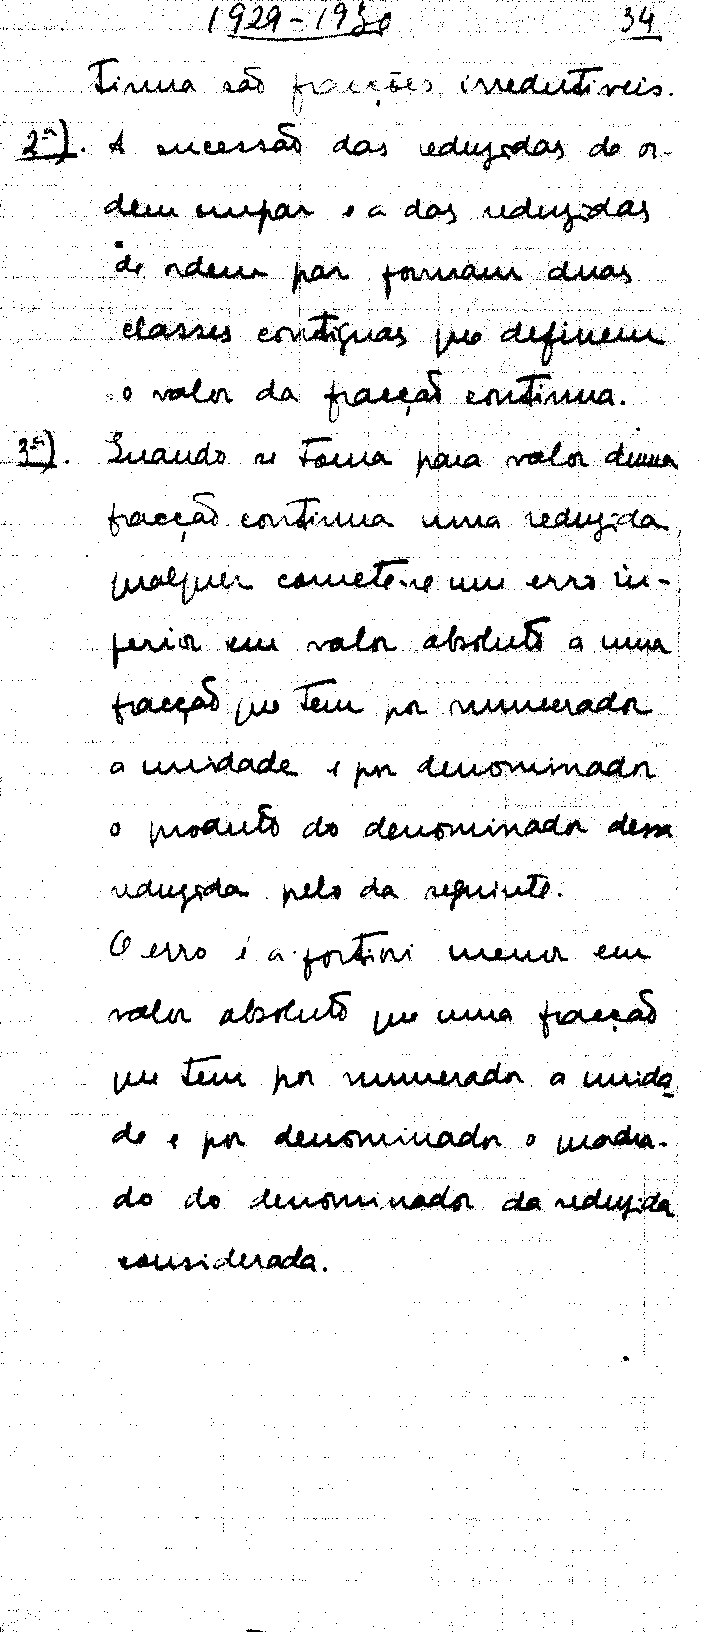 1929-1930 34
tinua são fracções irredutíveis.
2ª). A sucessão das reduzidas de or-
dem impar e a das reduzidas
de ordem par formam duas
classes contiguas que definem
o valor da fracção continua.
3ª). Quando se toma para valor duma
fracção continua uma reduzida
qualquer comete-se um erro in-
ferior em valor absoluto a uma
fracção que tem por numerador
a unidade e por denominador
o produto do denominador dessa
reduzida pelo da seguinte.
O erro é a fortiori menor em
valor absoluto que uma fracção
que tem por numerador a unida
de e por denominador o quadra-
do do denominador da reduzida
considerada.